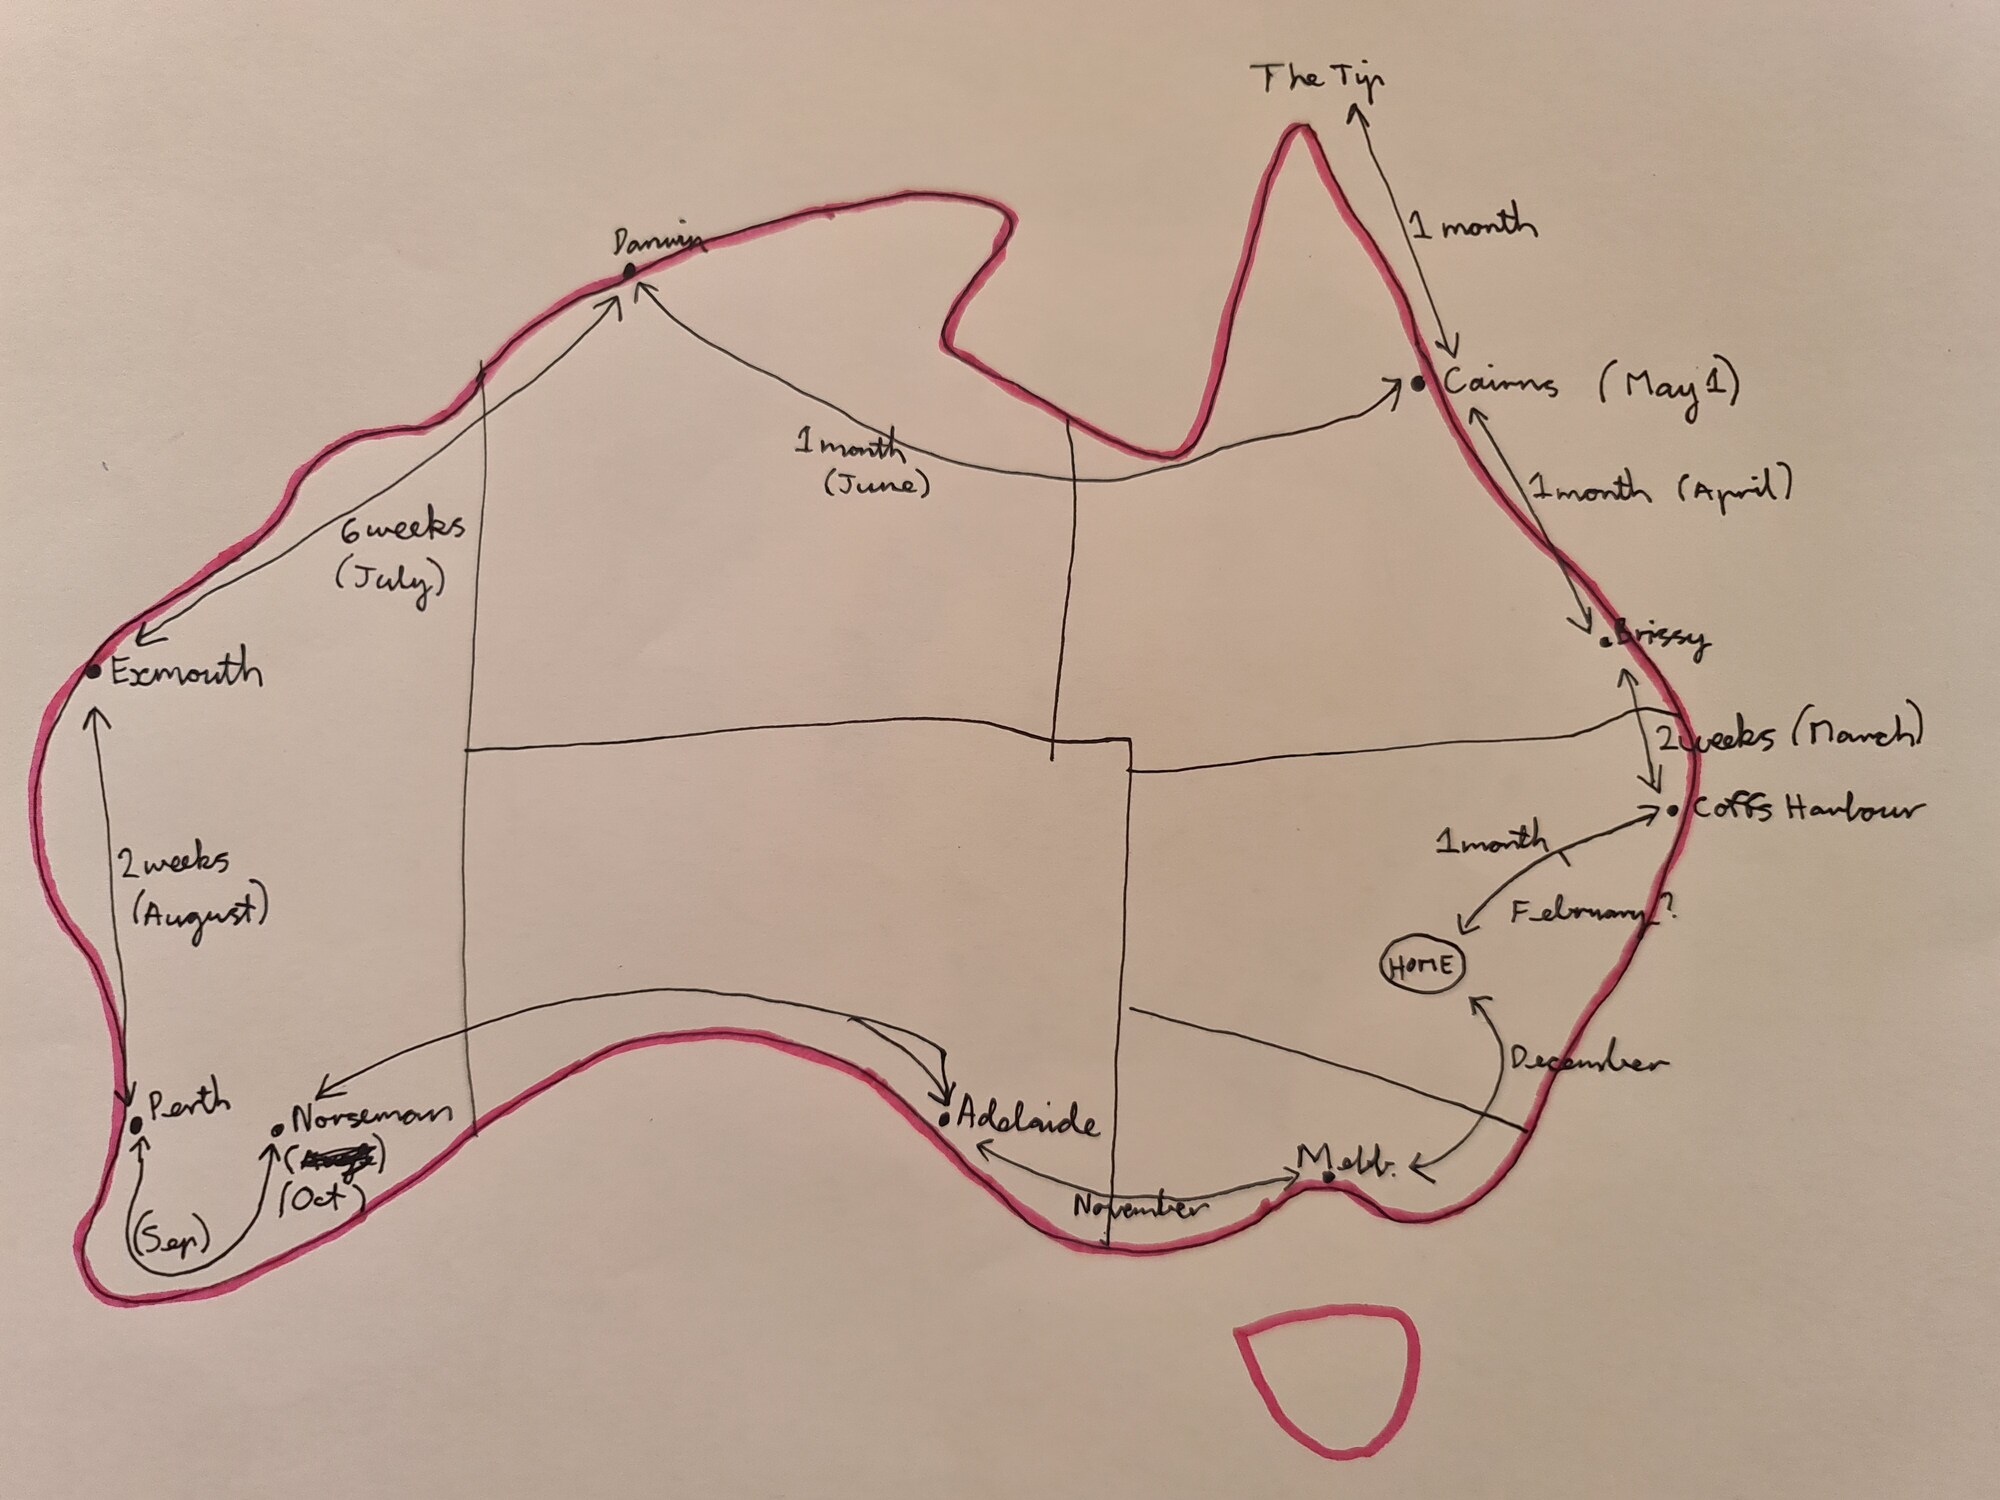 The Tip
1 month
Darwin
Cairns (May 1)
1 month
(June)
1 month (April)
6 weeks
(July)
Brissy
Exmouth
2 weeks (March)
Coffs Harbour
1 month
2 weeks
(August)
February?
HOME
December
Perth
Norseman
(Oct)
Adelaide
Melb.
November
(Sep)